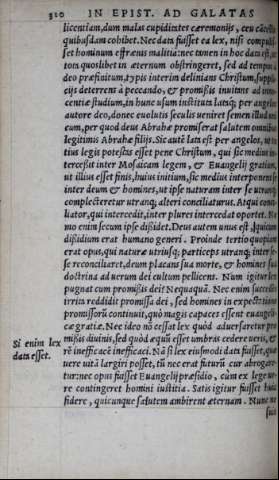 320 IN EPIST. AD GALATAS
licentiam, dum malas cupiditates cæremonijs, ceu cancellis
quibusdam cohibet. Nec data fuisset ea lex, nisi compulis
set hominum effrænis malitia: nec tamen in hoc data est, ut
totos quoslibet in æternum obstringeret, sed ad tempus a
deo præfinitum, typis interim delinians Christum, suppli
cijs deterrens à peccando, & promissis inuitans ad inno
centiæ studium, in hunc usum instituta latáq; per angelos
autore deo, donec euolutis seculis ueniret semen illud uni
cum, per quod deus Abrahæ promiserat salutem omnibus
legitimis Abrahæ filijs. Sic autē lata est per angelos, ut to
tius legis potestas esset penes Christum, qui sic medius in
tercessit inter Mosaicam legem, & Euangelij gratiam,
ut illius esset finis, huius initium, sic medius interponens se
inter deum & homines, ut ipse naturam inter se utranq;
complecteretur utranq; alteri conciliaturus. Atqui conci
liator, qui intercedit, inter plures intercedat oportet. Ne
mo enim secum ipse dissidet. Deus autem unus est, quicum
dissidium erat humano generi. Proinde tertio quopiam
erat opus, qui naturæ utriusq; particeps utranq; inter se
se reconciliaret, deum placans sua morte, & homines sua
doctrina ad uerum dei cultum pelliceret. Num igitur lex
pugnat cum promissis dei? Nequaquā. Nec enim successit
irrita reddidit promissa dei, sed homines in expectatione
promissorū continuit, quò magis capaces essent euangeli
cæ gratiæ. Nec ideo nō cessat lex quòd aduersaretur pro
missis diuinis, sed quòd æquū esset umbras cedere ueris, &
rē inefficacē inefficaci. Nā si lex eiusmodi data fuisset, quæ
uere uitā largiri posset, tū nec erat futurū cur abrogare
tur: nec opus fuisset Euangelij præsidio, cùm ex lege ue
re contingeret homini iustitia. Satis igitur fuisset huic
fidere, quicunque salutem ambirent æternam. Nunc ne
sui
Si enim lex
data esset.